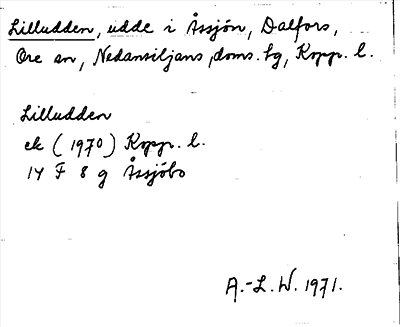 Lilludden, udde i Åssjön, Dalfors,
Ore sn, Nedansiljans doms. sg, Kopp. l.
Lilludden
ek (1970) Kopp. l.
14 F 8 g Åssjöbo
A.-L. W. 1971.